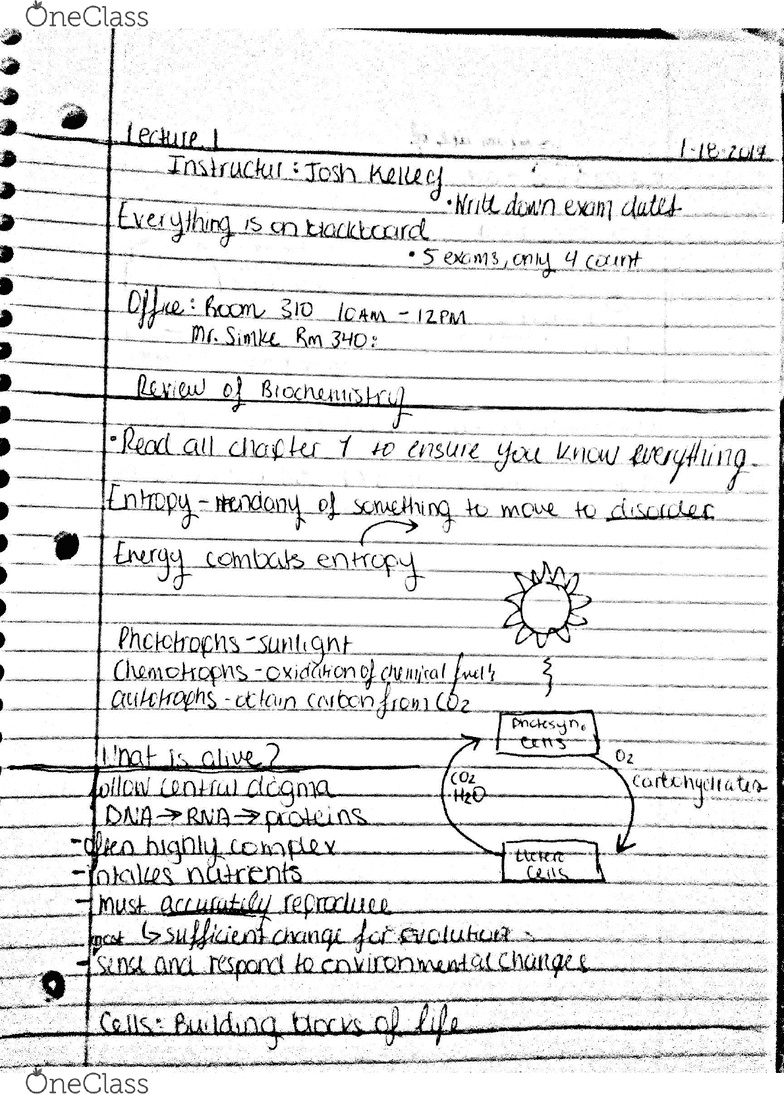 OneClass
Lecture 1
1-18-2017
Instructur: Josh Kelley
• Write down exam dates
Everything is on blackboard
• 5 exams, only 4 count
Office: Room 310 10AM - 12PM
Mr. Simke Rm 340:
Review of Biochemistry
• Read all chapter 1 to ensure you know everything.
Entropy - tendany of something to move to disorder
Energy combats entropy
Phototrophs - sunlight
Chemotrophs - oxidation of chemical fuels
autotrophs - obtain carbon from CO2
photosyn.
cells
What is alive?
O2
carbohydrates
CO2
H2O
follow central dogma
DNA → RNA → proteins
- often highly complex
cells
- intakes nutrients
- must accuratily reproduce
most ↳ sufficient change for evolution
- sense and respond to environmental changes
Cells: Building blocks of life
OneClass